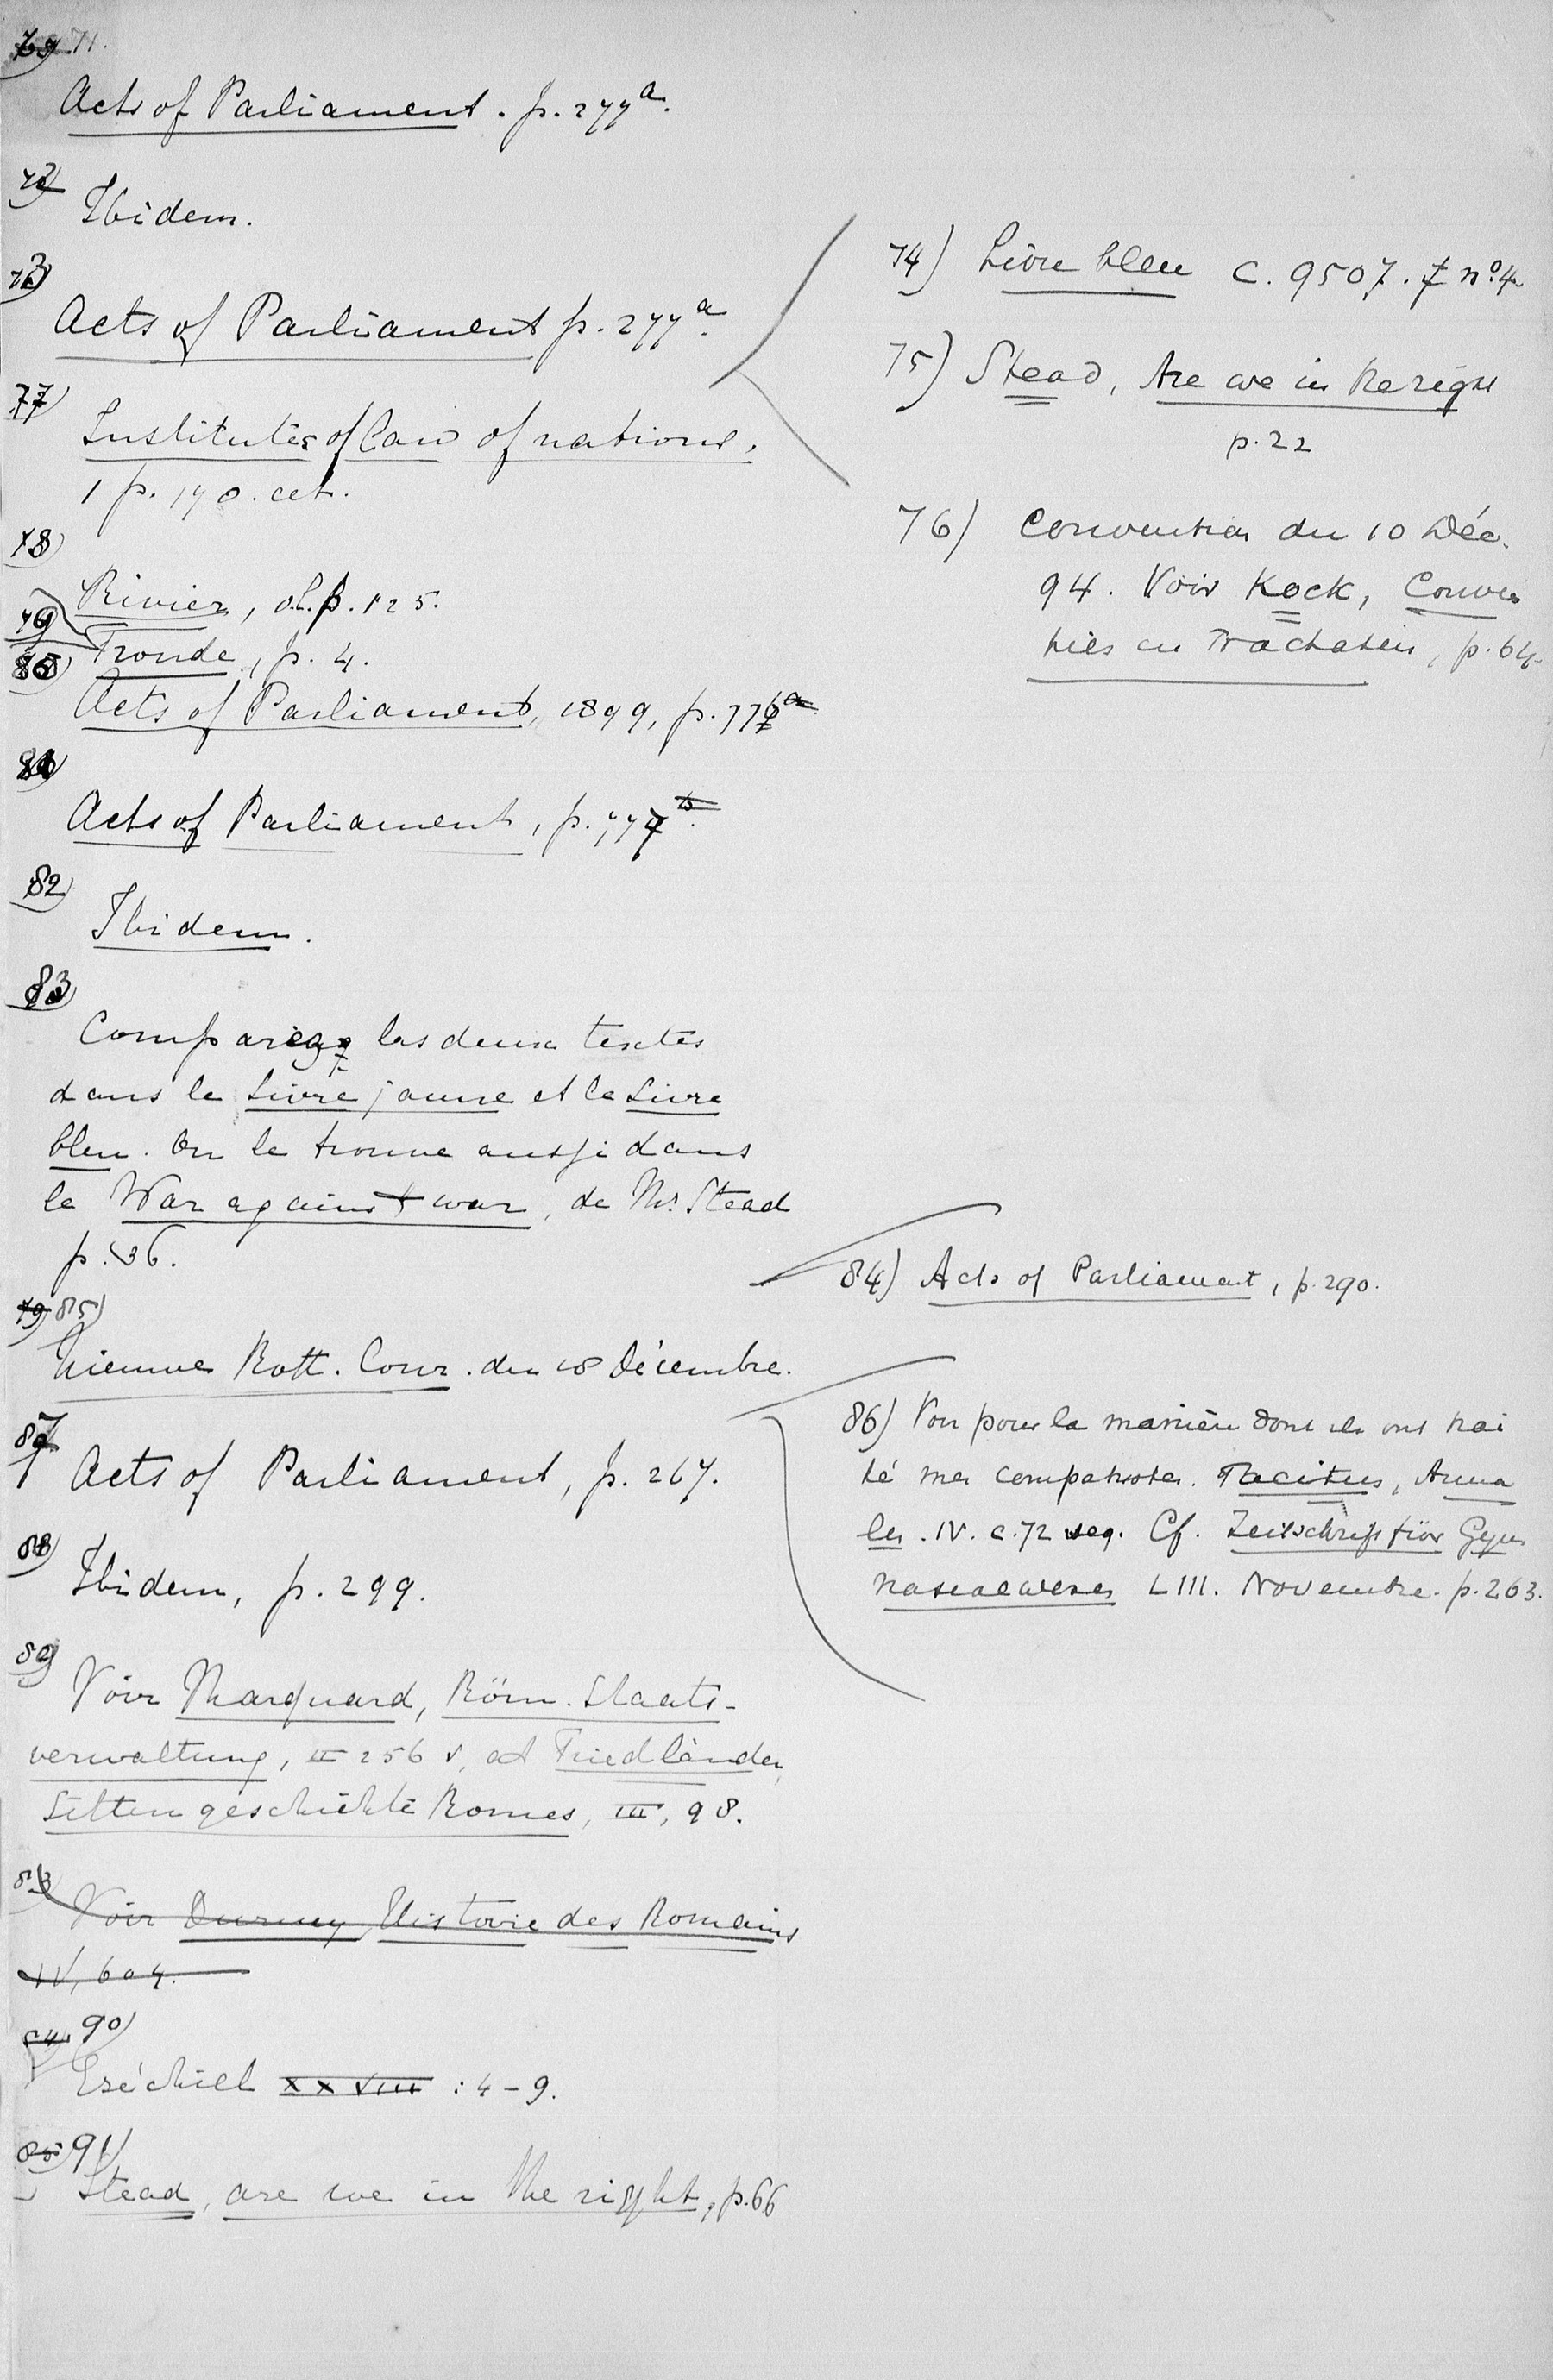 71.
Acts of Parliament. p. 277a.
72)
Ibidem.
73)
Acts of Parliament p. 277a.
77)
Institutes of law of nations.
1 p. 190. cet.
78)
Rivier, o.l. p. 125.
79)
Froude, p. 4.
80)
Acts of Parliament, 1899, p. 77
81)
Acts of Parliament, p. 777
82)
Ibidem.
83)
Comparez les deux textes
dans le Livre jaune et le Livre
bleu. On le trouve aussi dans
le War against war, de Mr. Stead
p. 36.
85)
Nieuwe Rott. Cour. du 18 Décembre.
87)
Acts of Parliament, p. 267.
88)
Ibidem, p. 299.
89)
Voir Marquard, Röm. Staats-
verwaltung, II 256 v, et Friedländer,
Sittengeschichte Romes, III, 98.
83)
Voir Duruy, Histoire des Romains
IV, 604.
84. 90)
Ezéchiel XXVIII : 4-9.
85 91)
Stead, are we in the right, p. 66
74) Livre bleu C. 9507. 7 no. 4
75) Stead, Are we in the right
p. 22
76) Convention du 10 Déc.
94. Voir Kock, Conven
ties en Trachaten, p. 64.
84) Acts of Parliament, p. 290.
86) Voir pour la manière dont ils ont trai
té mes compatriotes. Tacitus, Anna
les. IV. c. 72 seq. Cf. Zeitschrift für Gym
nasialwesen LIII. Novembre. p. 263.